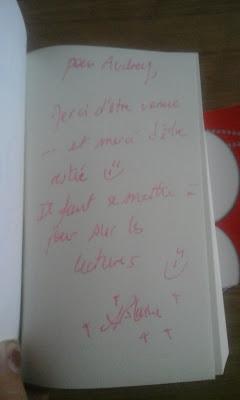 pour Audrey,
Merci d'être venue
... et merci d'être
restée
Il faut se mettre à
jour sur les
lectures